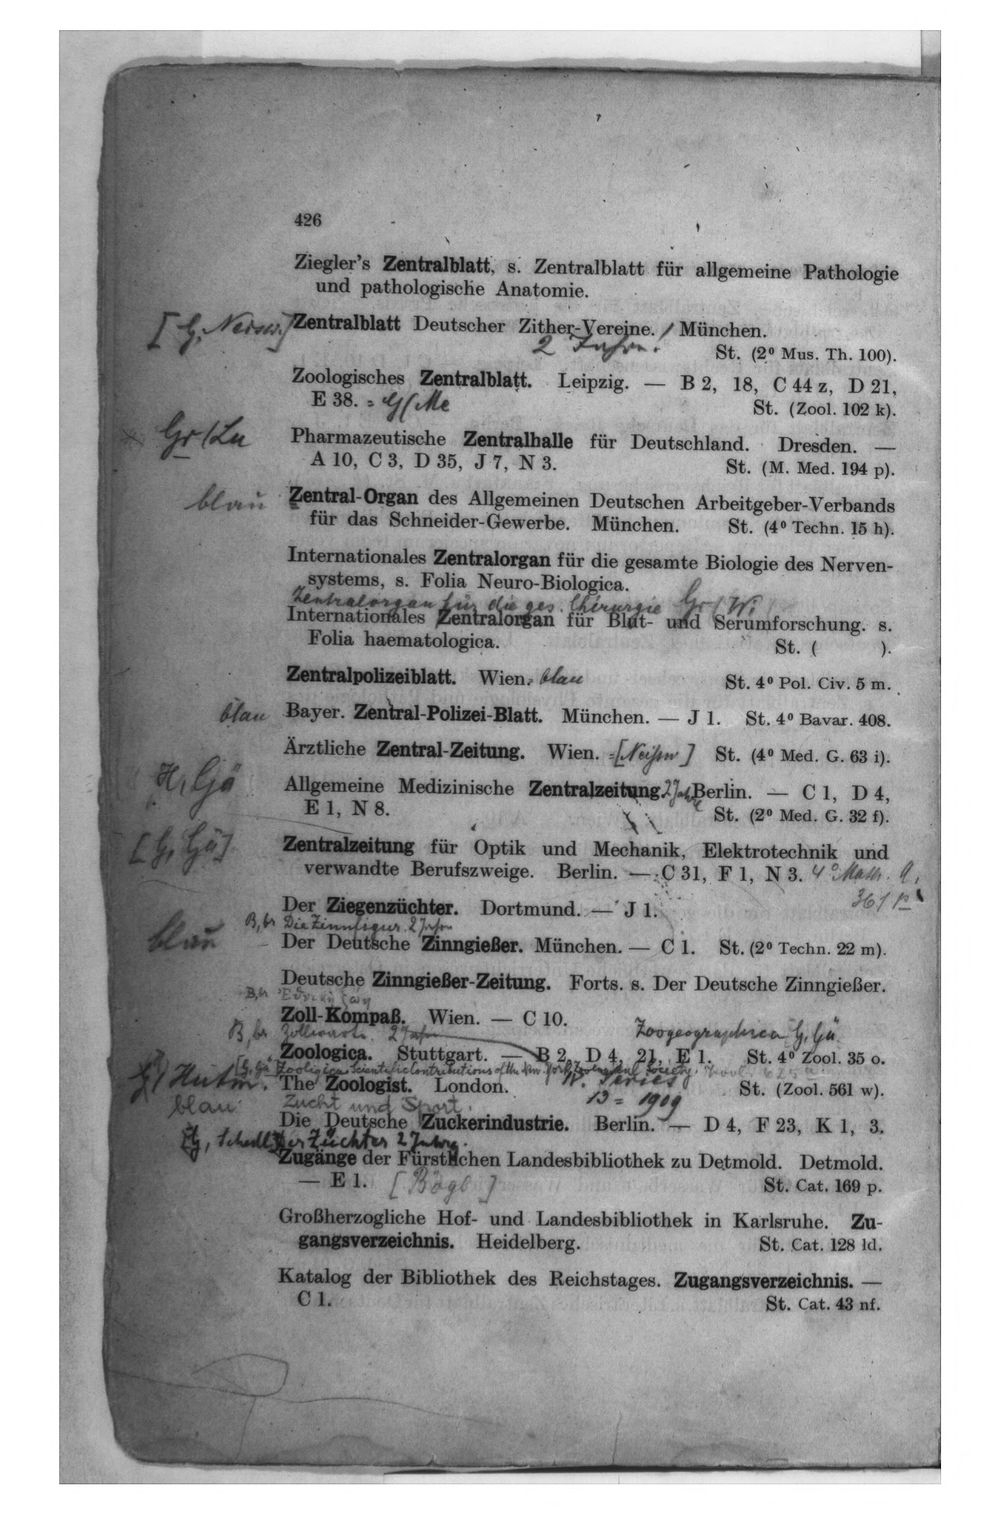 426
Ziegler's Zentralblatt, s. Zentralblatt für allgemeine Pathologie
und pathologische Anatomie.
[G, ]Zentralblatt Deutscher Zither-Vereine. / München.
2 Jahre. St. (2⁰ Mus. Th. 100).
Zoologisches Zentralblatt. Leipzig. — B 2, 18, C 44 z, D 21,
E 38. = G/Me St. (Zool. 102 k).
Gr/Lu Pharmazeutische Zentralhalle für Deutschland. Dresden. —
A 10, C 3, D 35, J 7, N 3. St. (M. Med. 194 p).
blau Zentral-Organ des Allgemeinen Deutschen Arbeitgeber-Verbands
für das Schneider-Gewerbe. München. St. (4⁰ Techn. 15 h).
Internationales Zentralorgan für die gesamte Biologie des Nerven-
systems, s. Folia Neuro-Biologica.
Zentralorgan für die ges. Chirurgie Gr/Wi
Internationales Zentralorgan für Blut- und Serumforschung. s.
Folia haematologica. St. ( ).
Zentralpolizeiblatt. Wien. blau St. 4⁰ Pol. Civ. 5 m.
blau Bayer. Zentral-Polizei-Blatt. München. — J 1. St. 4⁰ Bavar. 408.
Ärztliche Zentral-Zeitung. Wien. St. (4⁰ Med. G. 63 i).
H, Gjä Allgemeine Medizinische Zentralzeitung. 2 Jahre Berlin. — C 1, D 4,
E 1, N 8. St. (2⁰ Med. G. 32 f).
[G, Gü] Zentralzeitung für Optik und Mechanik, Elektrotechnik und
verwandte Berufszweige. Berlin. — C 31, F 1, N 3. 4⁰ Math. A.
361
Der Ziegenzüchter. Dortmund. — J 1.
B, br Die Zinnfigur. 2 Jahre
blau Der Deutsche Zinngießer. München. — C 1. St. (2⁰ Techn. 22 m).
Deutsche Zinngießer-Zeitung. Forts. s. Der Deutsche Zinngießer.
B, br
Zoll-Kompaß. Wien. — C 10.
B, br Zollwarte. 2 Jahre Zoogeographica G, Gü.
Zoologica. Stuttgart. — B 2, D 4, 21, E 1. St. 4⁰ Zool. 35 o.
Zoologica. Scientific Contributions of the New York Zoological Society.
The Zoologist. London. St. (Zool. 561 w).
Series 13 = 1909
blau Zucht und Sport.
Die Deutsche Zuckerindustrie. Berlin. — D 4, F 23, K 1, 3.
Der Züchter 2 Jahre.
Zugänge der Fürstlichen Landesbibliothek zu Detmold. Detmold.
— E 1. St. Cat. 169 p.
Großherzogliche Hof- und Landesbibliothek in Karlsruhe. Zu-
gangsverzeichnis. Heidelberg. St. Cat. 128 ld.
Katalog der Bibliothek des Reichstages. Zugangsverzeichnis. —
C 1. St. Cat. 43 nf.